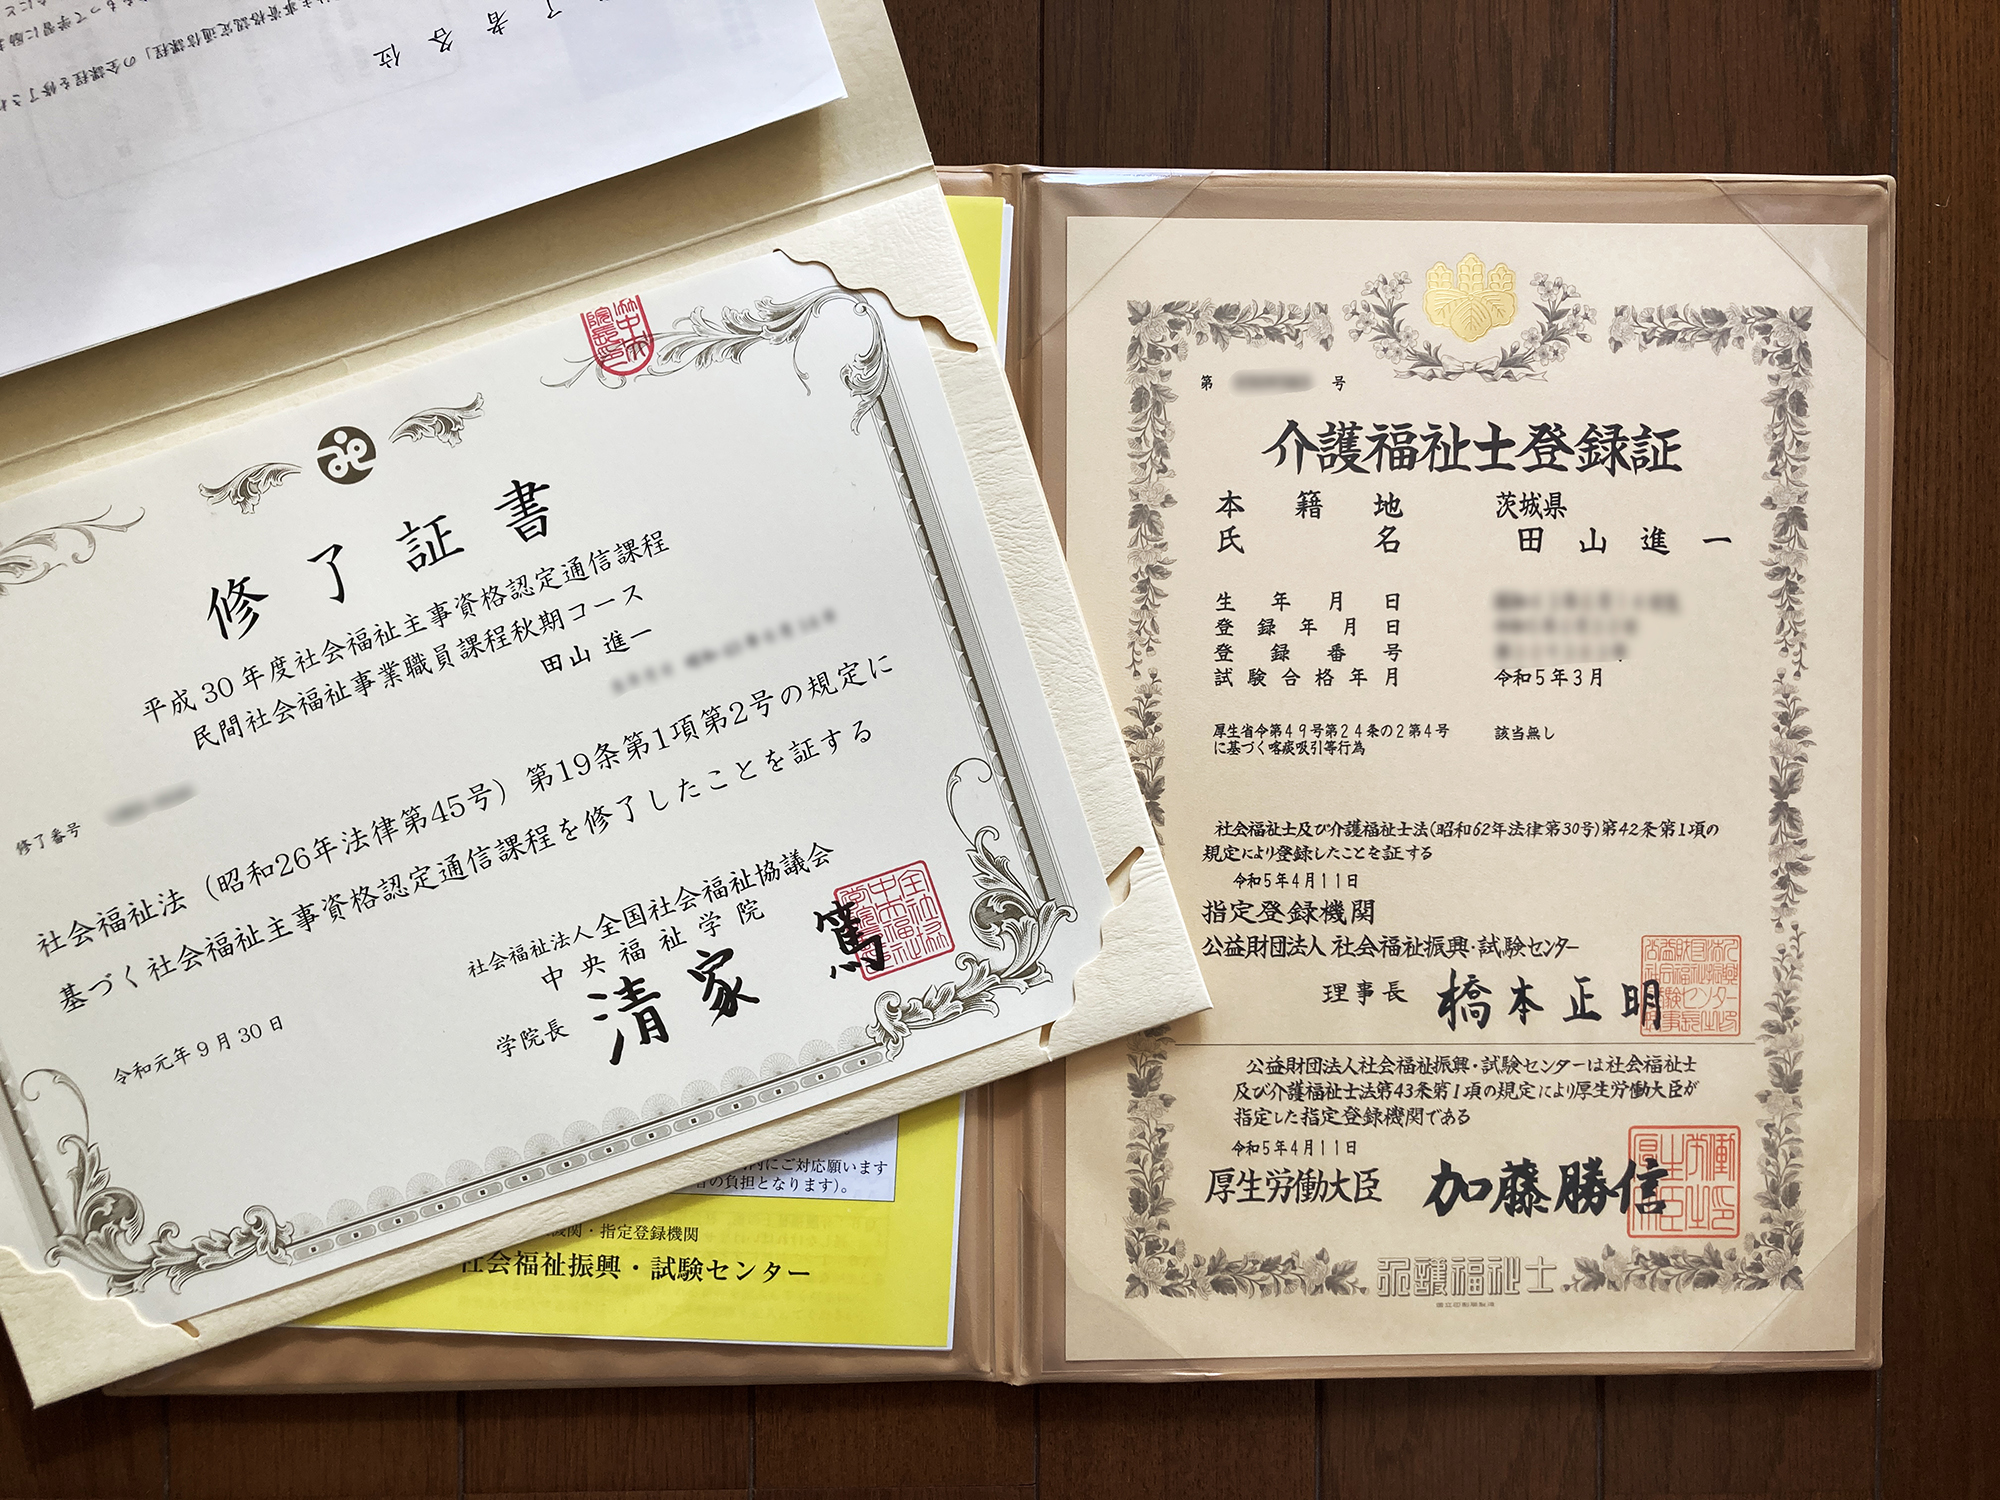 了者各位
修了証書
平成30年度社会福祉主事資格認定通信課程
民間社会福祉事業職員課程秋期コース
田山 進一
修了番号
社会福祉法（昭和26年法律第45号）第19条第1項第2号の規定に
基づく社会福祉主事資格認定通信課程を修了したことを証する
令和元年9月30日
社会福祉法人全国社会福祉協議会
中央福祉学院
学院長 清家 篤
内にご対応願います
の負担となります)。
機関・指定登録機関
社会福祉振興・試験センター
第 号
介護福祉士登録証
本籍地 茨城県
氏名 田山進一
生年月日
登録年月日
登録番号
試験合格年月 令和5年3月
厚生省令第49号第24条の2第4号 該当無し
に基づく喀痰吸引等行為
社会福祉士及び介護福祉士法(昭和62年法律第30号)第42条第1項の
規定により登録したことを証する
令和5年4月11日
指定登録機関
公益財団法人 社会福祉振興・試験センター
理事長 橋本正明
公益財団法人社会福祉振興・試験センターは社会福祉士
及び介護福祉士法第43条第1項の規定により厚生労働大臣が
指定した指定登録機関である
令和5年4月11日
厚生労働大臣 加藤勝信
介護福祉士